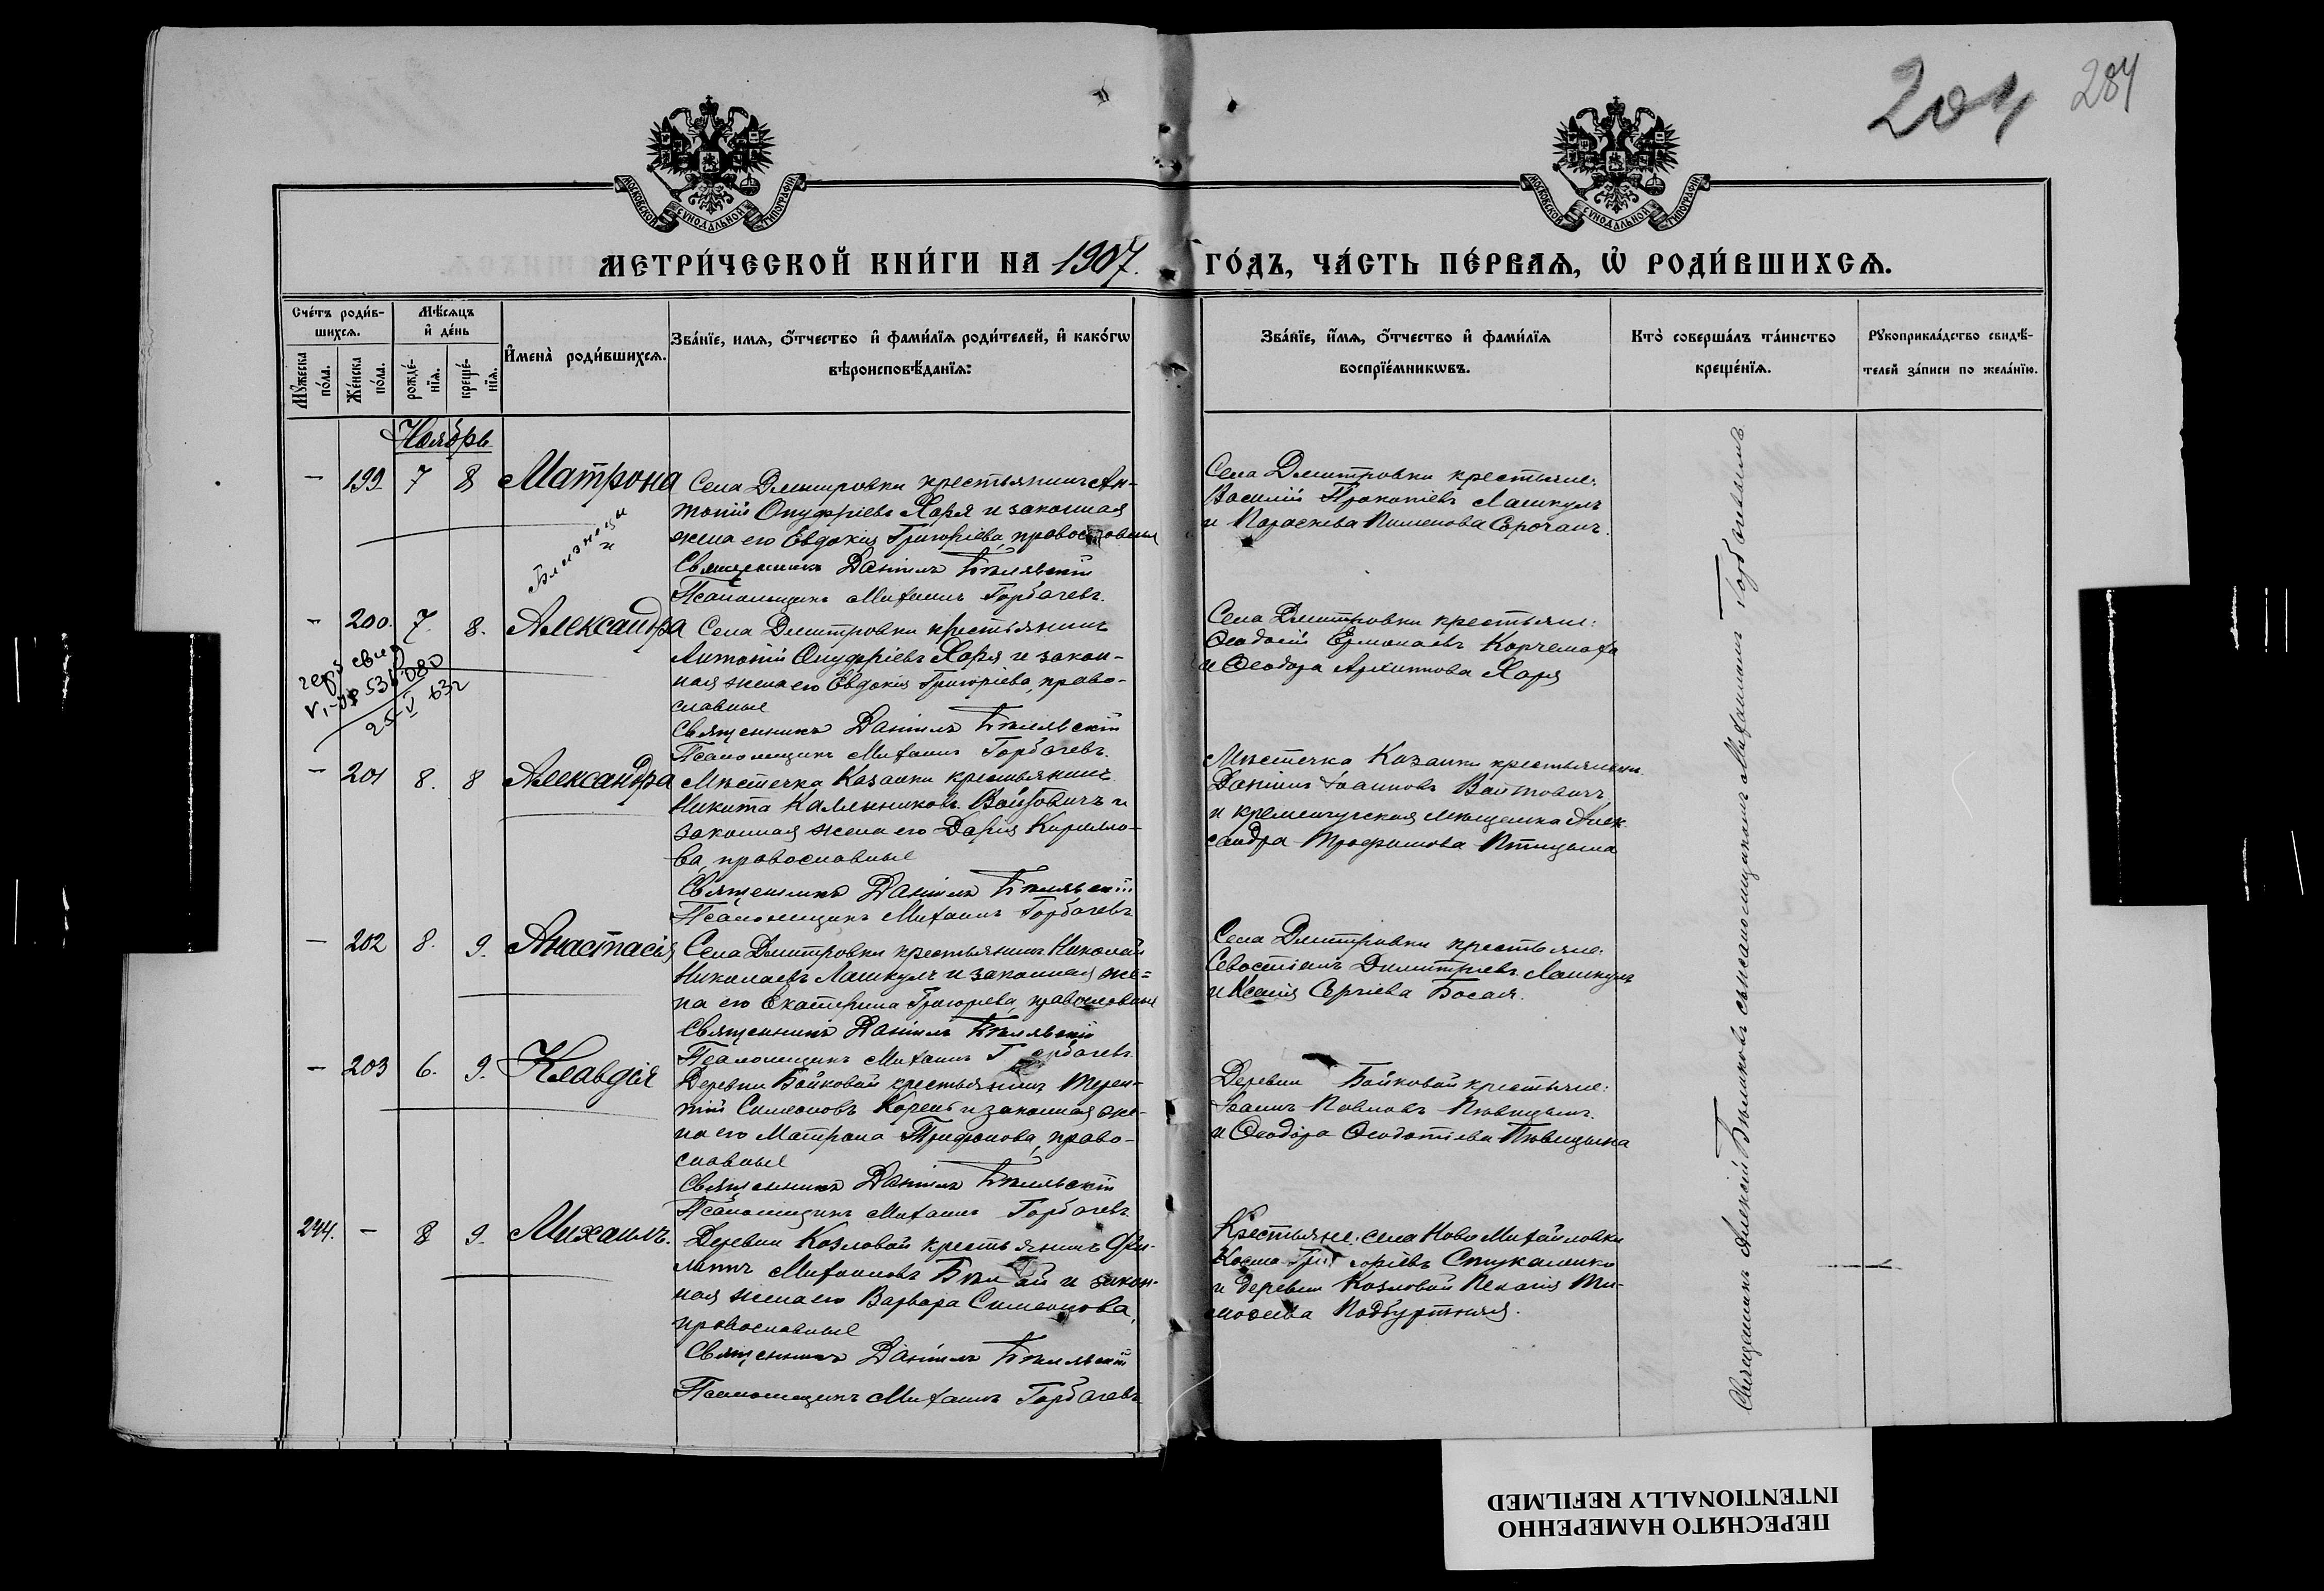 204 284
МОСКОВСКОЙ СѴНОДАЛЬНОЙ ТИПОГРАФІИ
МОСКОВСКОЙ СѴНОДАЛЬНОЙ ТИПОГРАФІИ
МЕТРИ́ЧЕСКОЙ КНИ́ГИ НА 1907. ГО́ДЪ, ЧА́СТЬ ПЕ́РВАѦ, Ѡ҆ РОДИ́ВШИХСѦ.
Сче́тъ роди́в-
шихсѧ.
Мꙋжеска по́ла.
Же́нска по́ла.
Мѣ́сѧцъ и҆ де́нь
рожде́-нїѧ.
креще́-нїѧ.
И҆мена̀ роди́вшихсѧ.
Зва́нїе, имѧ, ѻ҆́тчество и҆ фами́лїѧ роди́телей, и҆ како́гѡ
вѣроисповѣ́данїѧ:
Зва́нїе, и҆́мѧ, ѻ҆́тчество и҆ фами́лїѧ
воспрїе́мникѡвъ.
Кто̀ соверша́лъ та́инство
креще́нїѧ.
Рꙋкоприкла́дство свидѣ́-
телей за́писи по жела́нїю.
Ноябрь
- 199 7 8 Матрона
Села Дмитровки крестьянинъ Ан-
тоній Онуфріевъ Харя и законная
жена его Евдокія Григоріева, православные
Священникъ Даніилъ Бѣлявскій
Псаломщикъ Михаилъ Горбачевъ.
Села Дмитровки крестьяне:
Василій Прокопіевъ Лашкулъ
и Параскева Пименова Сорочанъ.
близнецы
- 200. 7. 8. Александра
Села Дмитровки крестьянинъ
Антоній Онуфріевъ Харя и закон-
ная жена его Евдокія Григоріева, право-
славные
Священникъ Даніилъ Бѣлявскій
Псаломщикъ Михаилъ Горбачевъ.
Села Дмитровки крестьяне:
Ѳеодосій Ермолаевъ Корчемаха
и Ѳеодора Архиппова Харя
- 201 8. 8 Александра
Мѣстечка Казанки крестьянинъ
Никита Каллиниковъ Войтовичъ и
законная жена его Дарія Кирилло-
ва, православные
Священникъ Даніилъ Бѣлявскій
Псаломщикъ Михаилъ Горбачевъ
Мѣстечка Казанки крестьянинъ
Даніилъ Іоанновъ Войтовичъ
и кременчугская мѣщанка Алек-
сандра Трофимова Птицына
- 202 8. 9. Анастасія
Села Дмитровки крестьянинъ Николай
Николаевъ Лашкулъ и законная же-
на его Екатерина Григорьева, православные
Священникъ Даніилъ Бѣлявскій
Псаломщикъ Михаилъ Горбачевъ
Села Дмитровки крестьяне:
Севостіанъ Димитріевъ Лашкулъ
и Ксенія Сергіева Босая.
- 203 6. 9. Клавдія
Деревни Бойковой крестьянинъ Терен-
тій Симеоновъ Корень и законная же-
на его Матрона Трифонова, право-
славные
Священникъ Даніилъ Бѣлявскій
Псаломщикъ Михаилъ Горбачевъ.
Деревни Бойковой крестьяне:
Іоаннъ Павловъ
и Ѳеодора
244. - 8 9. Михаилъ.
Деревни Козловой крестьянинъ Фи-
липпъ Михаиловъ и закон-
ная жена его Варвара Симеонова,
православные
Священникъ Даніилъ Бѣлявскій
Псаломщикъ Михаилъ Горбачевъ
Крестьяне: села Ново Михайловки
Косма Григоріевъ Стукаленко
и деревни Козловой Пелагія Ти-
моѳеева
Священникъ Алексій Бѣликовъ съ псаломщикомъ Михаиломъ Горбачевымъ
ПЕРЕСНЯТО НАМЕРЕННО
INTENTIONALLY REFILMED